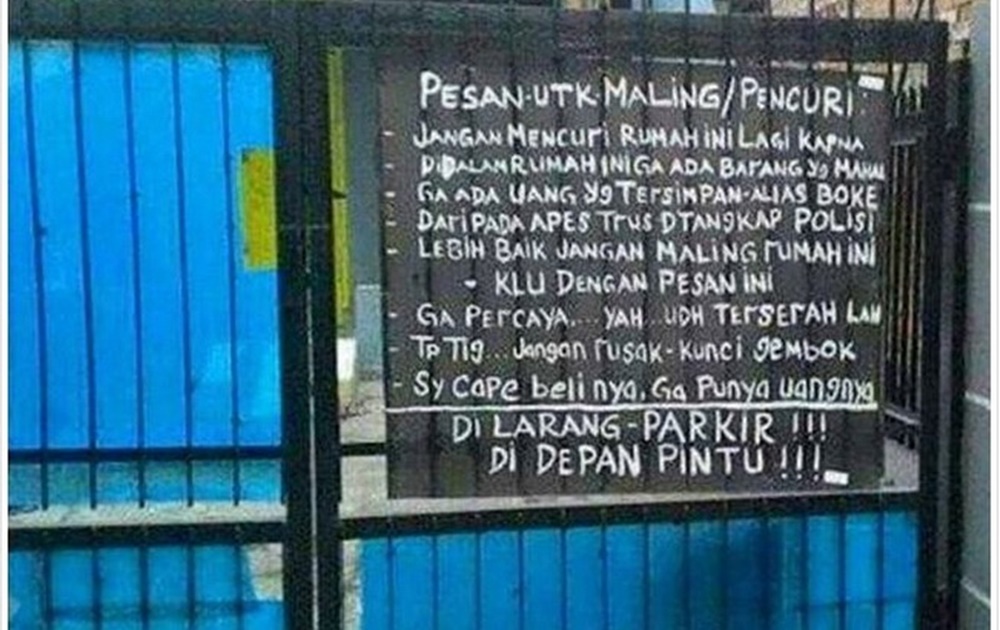 PESAN-UTK-MALING/PENCURI:
- JANGAN MENCURI RUMAH INI LAGI KARNA
- DIDALAM RUMAH INI GA ADA BARANG Yg MAHAL
- GA ADA UANG Yg TERSIMPAN-ALIAS BOKE
- DARIPADA APES TRUS DTANGKAP POLISI
- LEBIH BAIK JANGAN MALING RUMAH INI
- KLU DENGAN PESAN INI
- GA PERCAYA.... YAH...UDH TERSERAH LAH
- Tp Tlg... Jangan rusak-kunci gembok
- Sy Cape beli nya, Ga Punya uangnya
DI LARANG-PARKIR !!!
DI DEPAN PINTU !!!